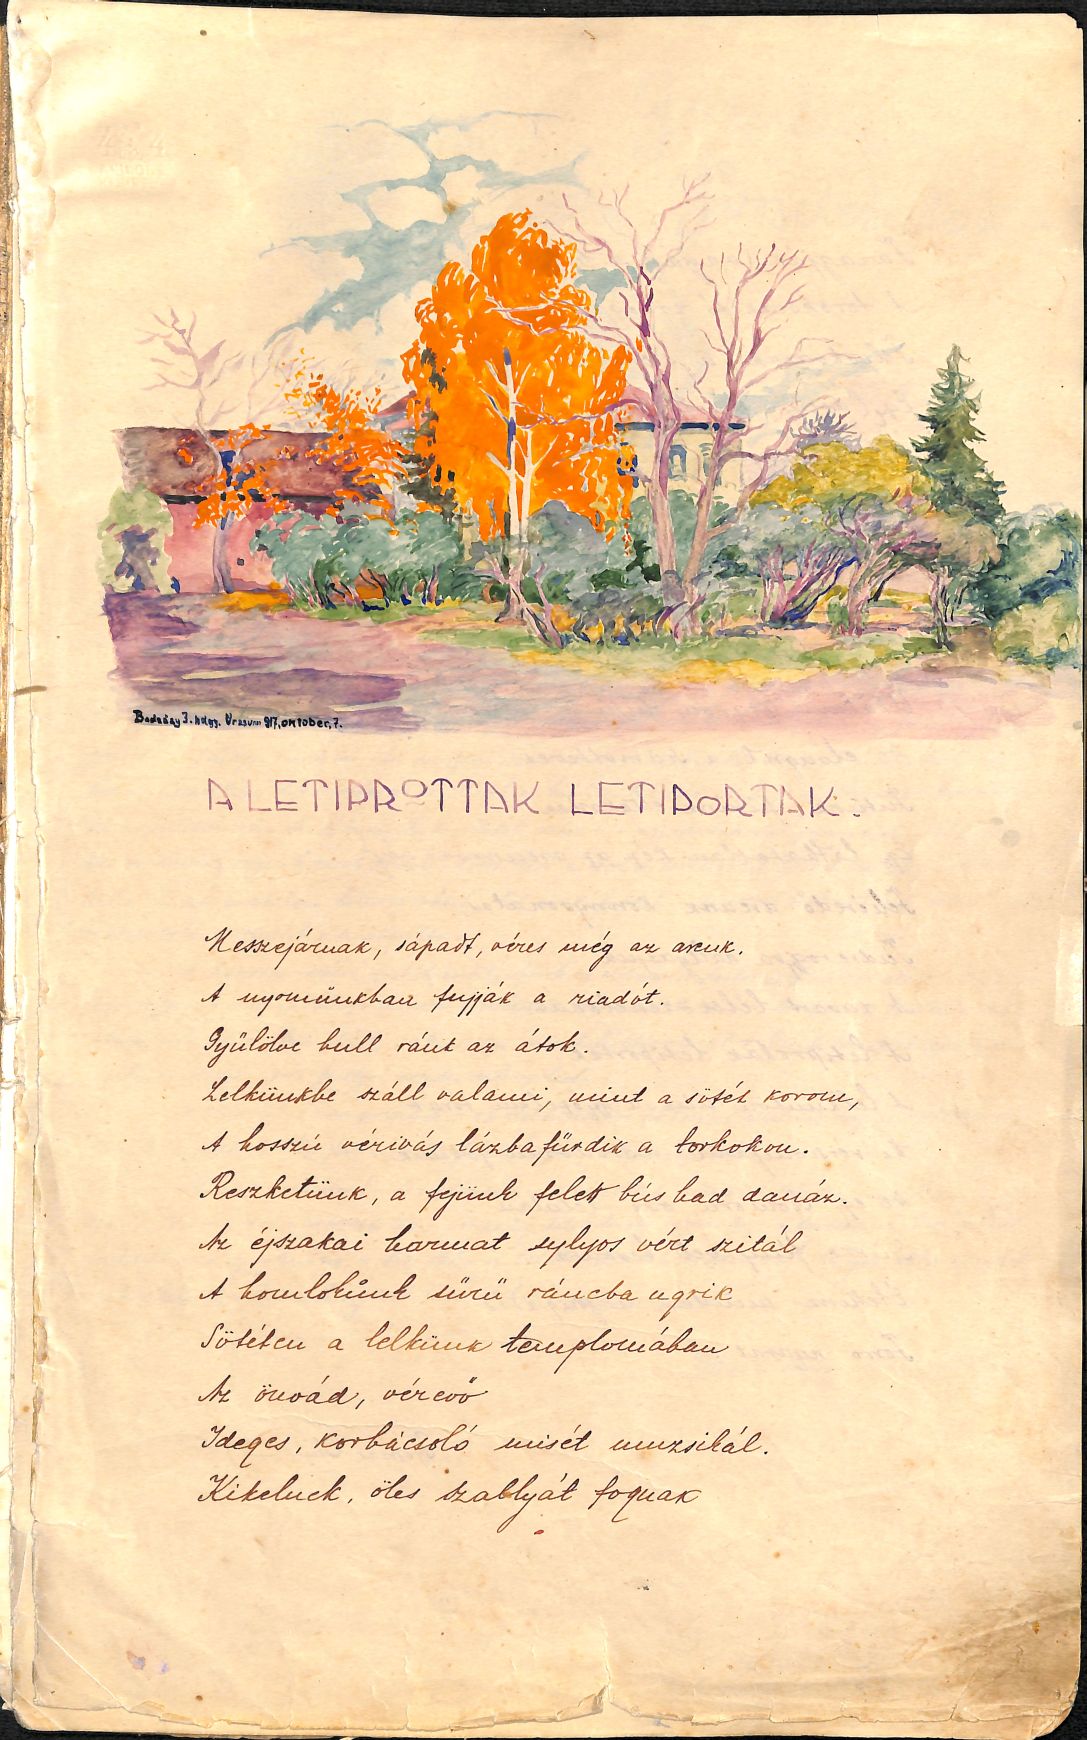 Badaday J. hdgy. Uzsunn 917, oktober, 7.
A LETIPROTTAK LETIPORTAK.
Messzejárnak, sápadt, véres még az arcuk.
A nyomunkban fujják a riadót.
Gyülölve hull ránk az átok.
Lelkünkbe száll valami, mint a sötét korom,
A hosszú vérivás lázba fürdik a torkokon.
Reszketünk, a fejünk felett bús had danáz.
Az éjszakai harmat sylyos vért szitál
A homlokunk sürü ráncba ugrik
Sötéten a lelkünk templomában
Az önvád, vérevö
Ideges, korbácsoló misét muzsikál.
Kikeluek, öles szablyát fognak